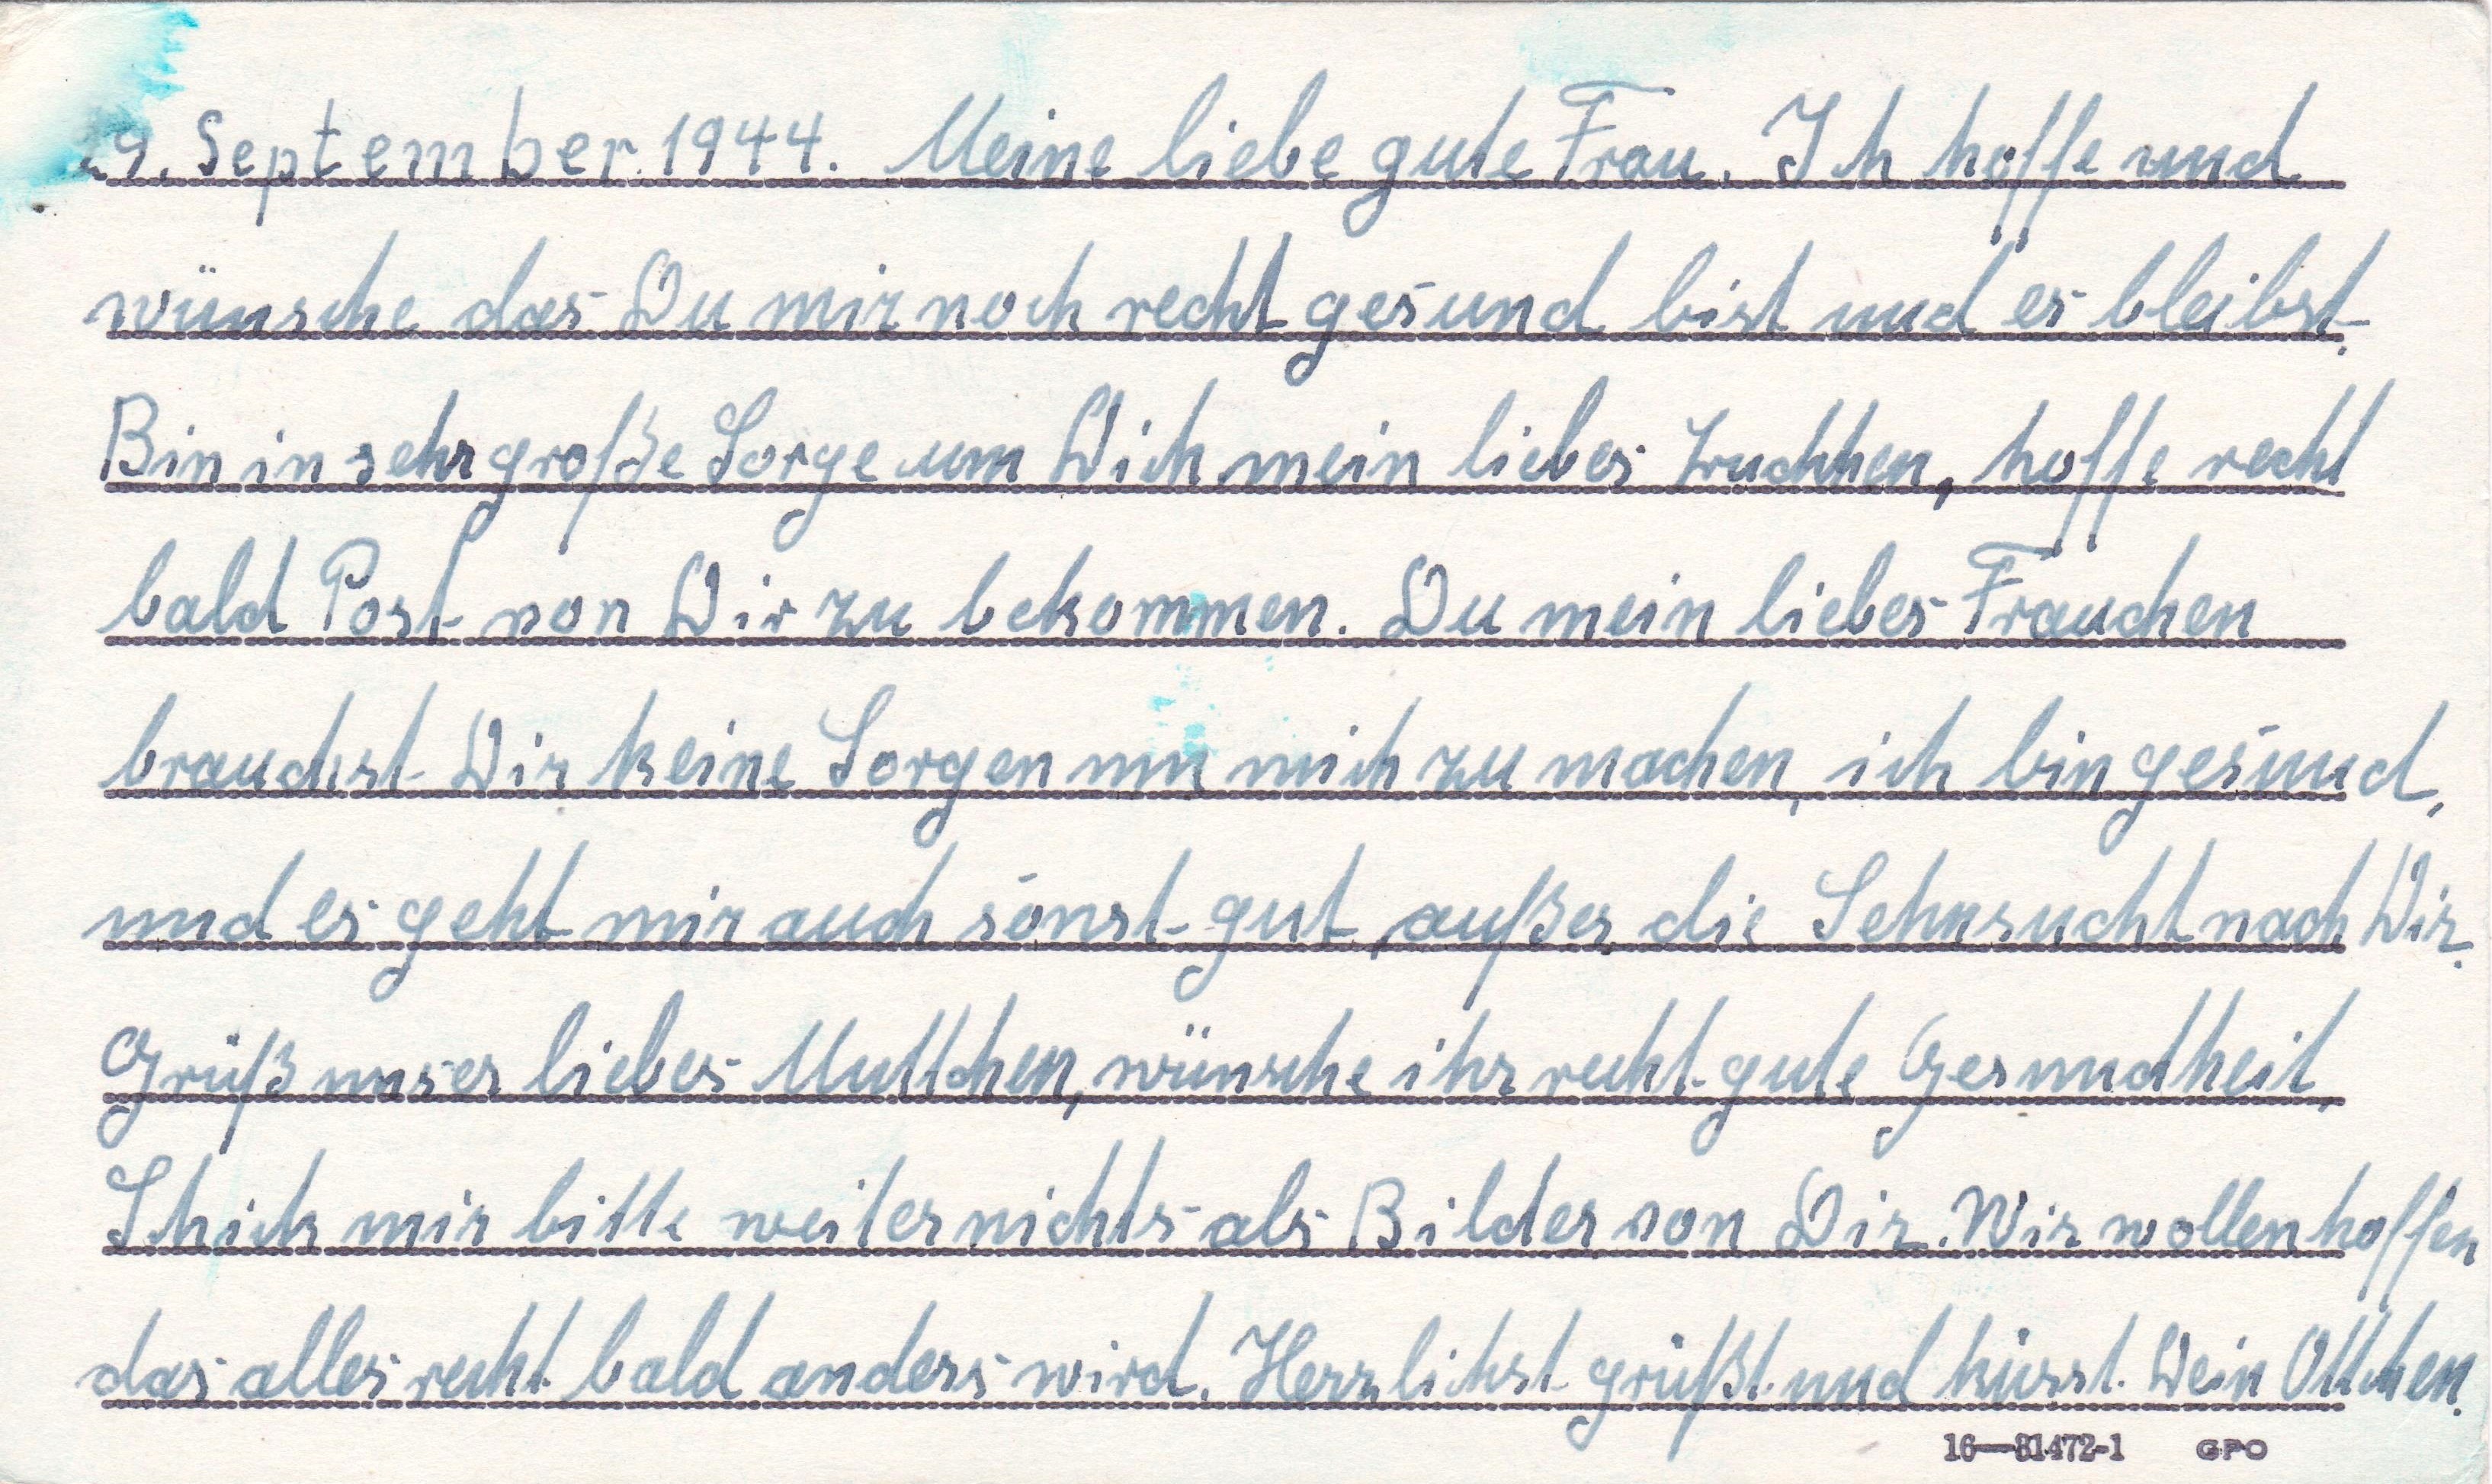 29. September 1944. Meine liebe gute Frau. Ich hoffe und
wünsche das Du mir noch recht gesund bist und es bleibst.
Bin in sehr große Sorge um Dich mein liebes, hoffe recht
bald Post von Dir zu bekommen. Du mein liebes Frauchen
brauchst Dir keine Sorgen um mich zu machen, ich bin gesund,
und es geht mir auch sonst gut, außer die Sehnsucht nach Dir.
Grüß unser liebes Muttchen, wünsche ihr recht gute Gesundheit.
Schick mir bitte weiter nichts als Bilder von Dir. Wir wollen hoffen
das alles recht bald anders wird. Herzlichst grüßt und küsst Dein Ottchen.
16—81472-1 GPO